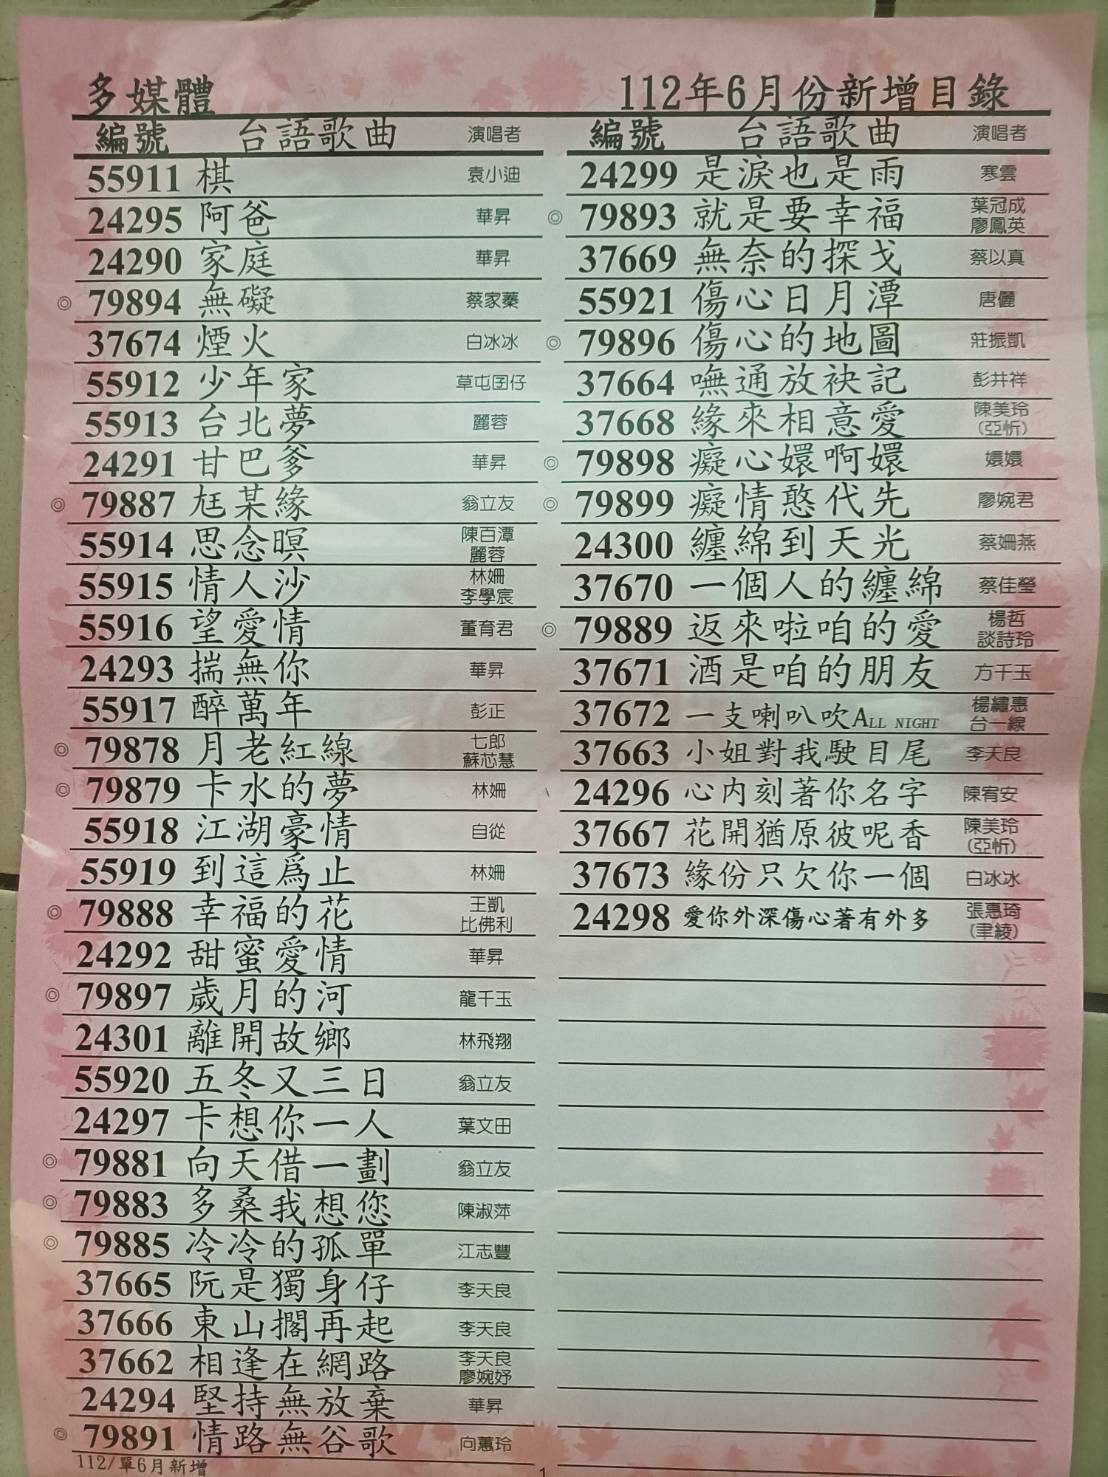 多媒體 112年6月份新增目錄
編號 台語歌曲 演唱者
55911 棋 袁小迪
24295 阿爸 華昇
24290 家庭 華昇
◎ 79894 無礙 蔡家蓁
37674 煙火 白冰冰
55912 少年家 草屯囝仔
55913 台北夢 麗蓉
24291 甘巴爹 華昇
◎ 79887 尪某緣 翁立友
55914 思念暝 陳百潭 麗蓉
55915 情人沙 林姍 李學宸
55916 望愛情 董育君
24293 揣無你 華昇
55917 醉萬年 彭正
◎ 79878 月老紅線 七郎 蘇芯慧
◎ 79879 卡水的夢 林姍
55918 江湖豪情 自從
55919 到這為止 林姍
◎ 79888 幸福的花 王凱 比佛利
24292 甜蜜愛情 華昇
◎ 79897 歲月的河 龍千玉
24301 離開故鄉 林飛翔
55920 五冬又三日 翁立友
24297 卡想你一人 葉文田
◎ 79881 向天借一劃 翁立友
◎ 79883 多桑我想您 陳淑萍
◎ 79885 冷冷的孤單 江志豐
37665 阮是獨身仔 李天良
37666 東山擱再起 李天良
37662 相逢在網路 李天良 廖婉妤
24294 堅持無放棄 華昇
◎ 79891 情路無谷歌 向蕙玲
112/單6月新增
編號 台語歌曲 演唱者
24299 是淚也是雨 寒雲
◎ 79893 就是要幸福 葉冠成 廖鳳英
37669 無奈的探戈 蔡以真
55921 傷心日月潭 唐儷
◎ 79896 傷心的地圖 莊振凱
37664 嘸通放袂記 彭井祥
37668 緣來相意愛 陳美玲 (亞忻)
◎ 79898 癡心嬛啊嬛 嬛嬛
◎ 79899 癡情憨代先 廖婉君
24300 纏綿到天光 蔡姍燕
37670 一個人的纏綿 蔡佳瑩
◎ 79889 返來啦咱的愛 楊哲 談詩玲
37671 酒是咱的朋友 方千玉
37672 一支喇叭吹ALL NIGHT 楊繡惠 台一線
37663 小姐對我駛目尾 李天良
24296 心內刻著你名字 陳宥安
37667 花開猶原彼呢香 陳美玲 (亞忻)
37673 緣份只欠你一個 白冰冰
24298 愛你外深傷心著有外多 張惠琦 (聿綾)
1